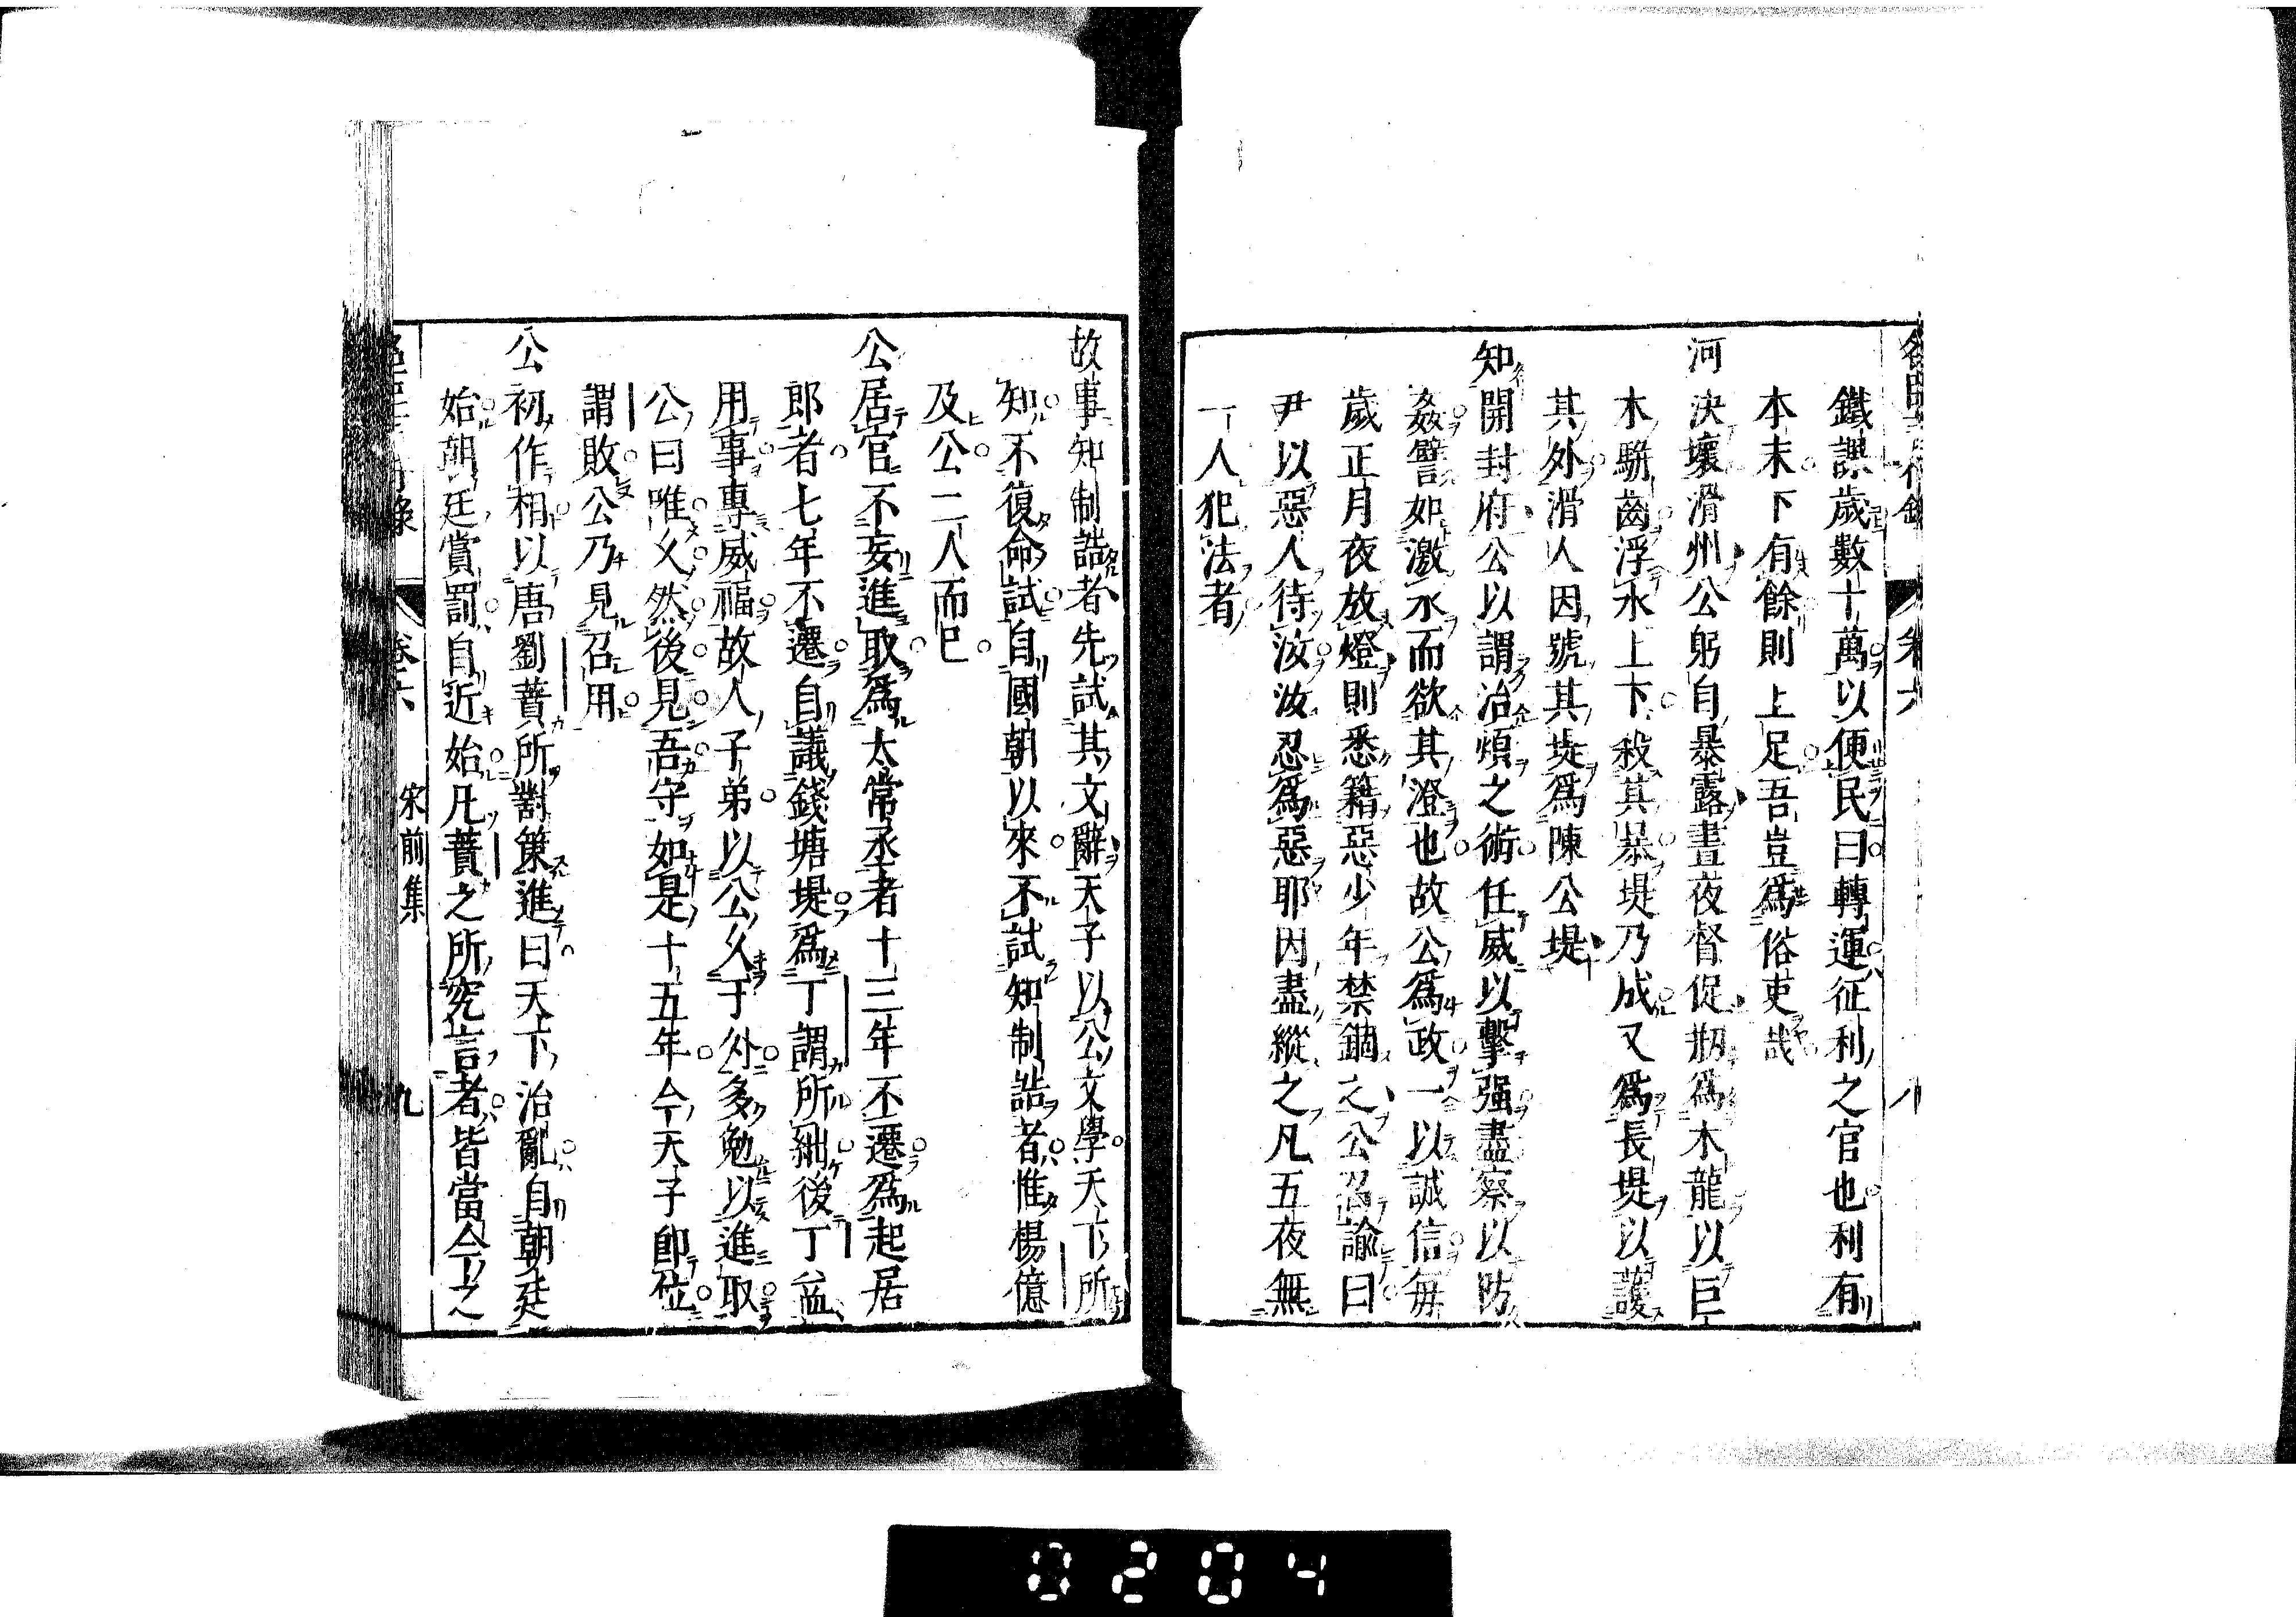 鐵課歲數十萬以便民曰轉運征利之官也利有
本末下有餘則上足吾豈爲俗吏哉
河決壞滑州公躬自暴露晝夜督促刱爲木龍以巨
木駢齒浮水上下殺其暴堤乃成又爲長堤以護
其外滑人因號其堤爲陳公堤
知開封府公以謂治煩之術任威以擊强盡察以防
姦譬如激水而欲其澄也故公爲政一以誠信每
歲正月夜放燈則悉籍惡少年禁錮之公召諭曰
尹以惡人待汝汝忍爲惡耶因盡縱之凡五夜無
一人犯法者
故事知制誥者先試其文辭天子以公文學天下所
知不復命試自國朝以來不試知制誥者惟楊億
及公二人而已
公居官不妄進取爲太常丞者十三年不遷爲起居
郎者七年不遷自議錢塘堤爲丁謂所絀後丁益
用事專威福故人子弟以公久于外多勉以進取
公曰唯久然後見吾守如是十五年今天子卽位
謂敗公乃見召用
公初作相以唐劉蕡所對策進曰天下治亂自朝廷
始朝廷賞罰自近始凡蕡之所究言者皆當今之
卷六 宋前集 九
0204